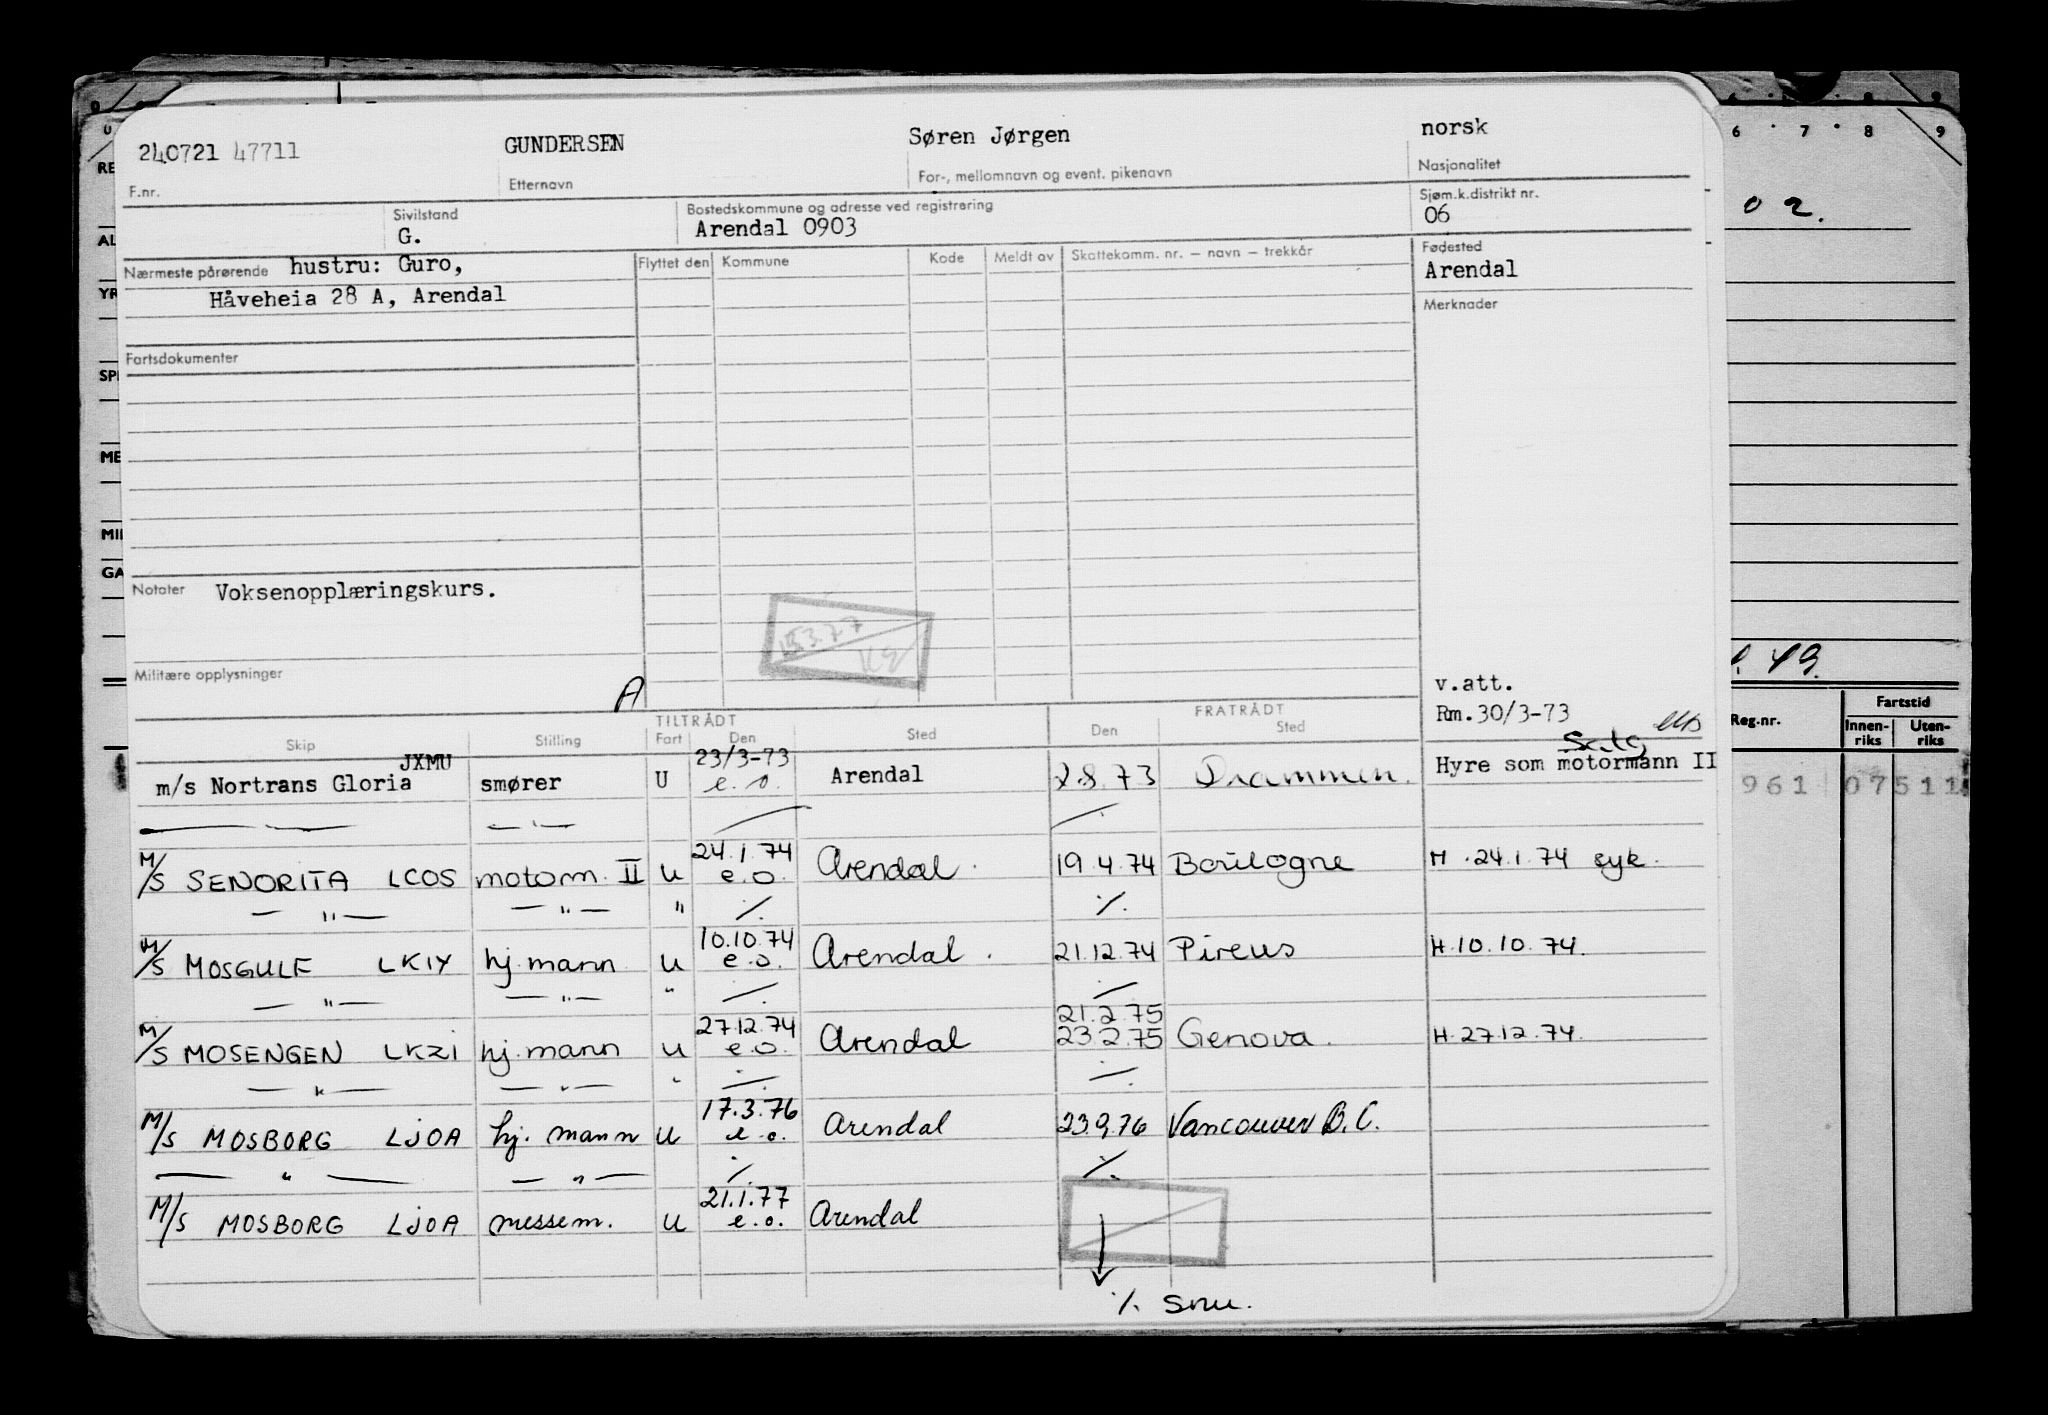 240721 47711 GUNDERSEN Søren Jørgen norsk
F.nr. Etternavn For-, mellomnavn og event. pikenavn Nasjonalitet
Sivilstand Bostedskommune og adresse ved registrering Sjøm.k.distrikt nr.
G. Arendal 0903 06
Nærmeste pårørende hustru: Guro, Flyttet den Kommune Kode Meldt av Skattekomm. nr. – navn – trekkår Fødested
Håveheia 28 A, Arendal Arendal
Merknader
Fartsdokumenter
Notater Voksenopplæringskurs.
15.3.77
Militære opplysninger
A
v.att.
Rm.30/3-73
TILTRÅDT FRATRÅDT
Skip Stilling Fart Den Sted Den Sted
JXMU 23/3-73
m/s Nortrans Gloria smører U e.o. Arendal 2.8.73 Drammen. Hyre som motormann II
— — — " — / ⁒
24.1.74
M/S SENORITA LCOS motorm. II U e.o. Arendal. 19.4.74 Boulogne M.24.1.74 syk.
— " — — " — " ⁒ ⁒
10.10.74
M/S MOSGULF LKIY hj.mann U e.o. Arendal. 21.12.74 Pireus H.10.10.74.
— " — — " — " ⁒ ⁒
27.12.74 21.2.75
M/S MOSENGEN LKZI hj.mann U e.o. Arendal 23.2.75 Genova. H.27.12.74.
— " — — " — " ⁒ ⁒
17.3.76
M/S MOSBORG LJOA hj. mann U e.o. Arendal 23.9.76 Vancouver B.C.
— " — — " — ⁒ ⁒
21.1.77
M/S MOSBORG LJOA messem. U e.o. Arendal
⁒ snu.
6 7 8 9
02.
49.
Reg.nr. Fartstid
Innen-riks Uten-riks
961 07511